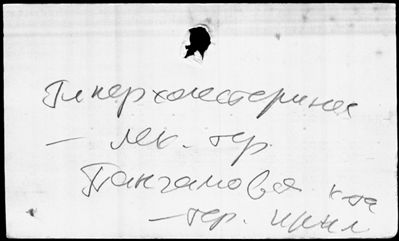 Гиперхолестерине
— лек. тер.
Пангамова к-та
— тер.